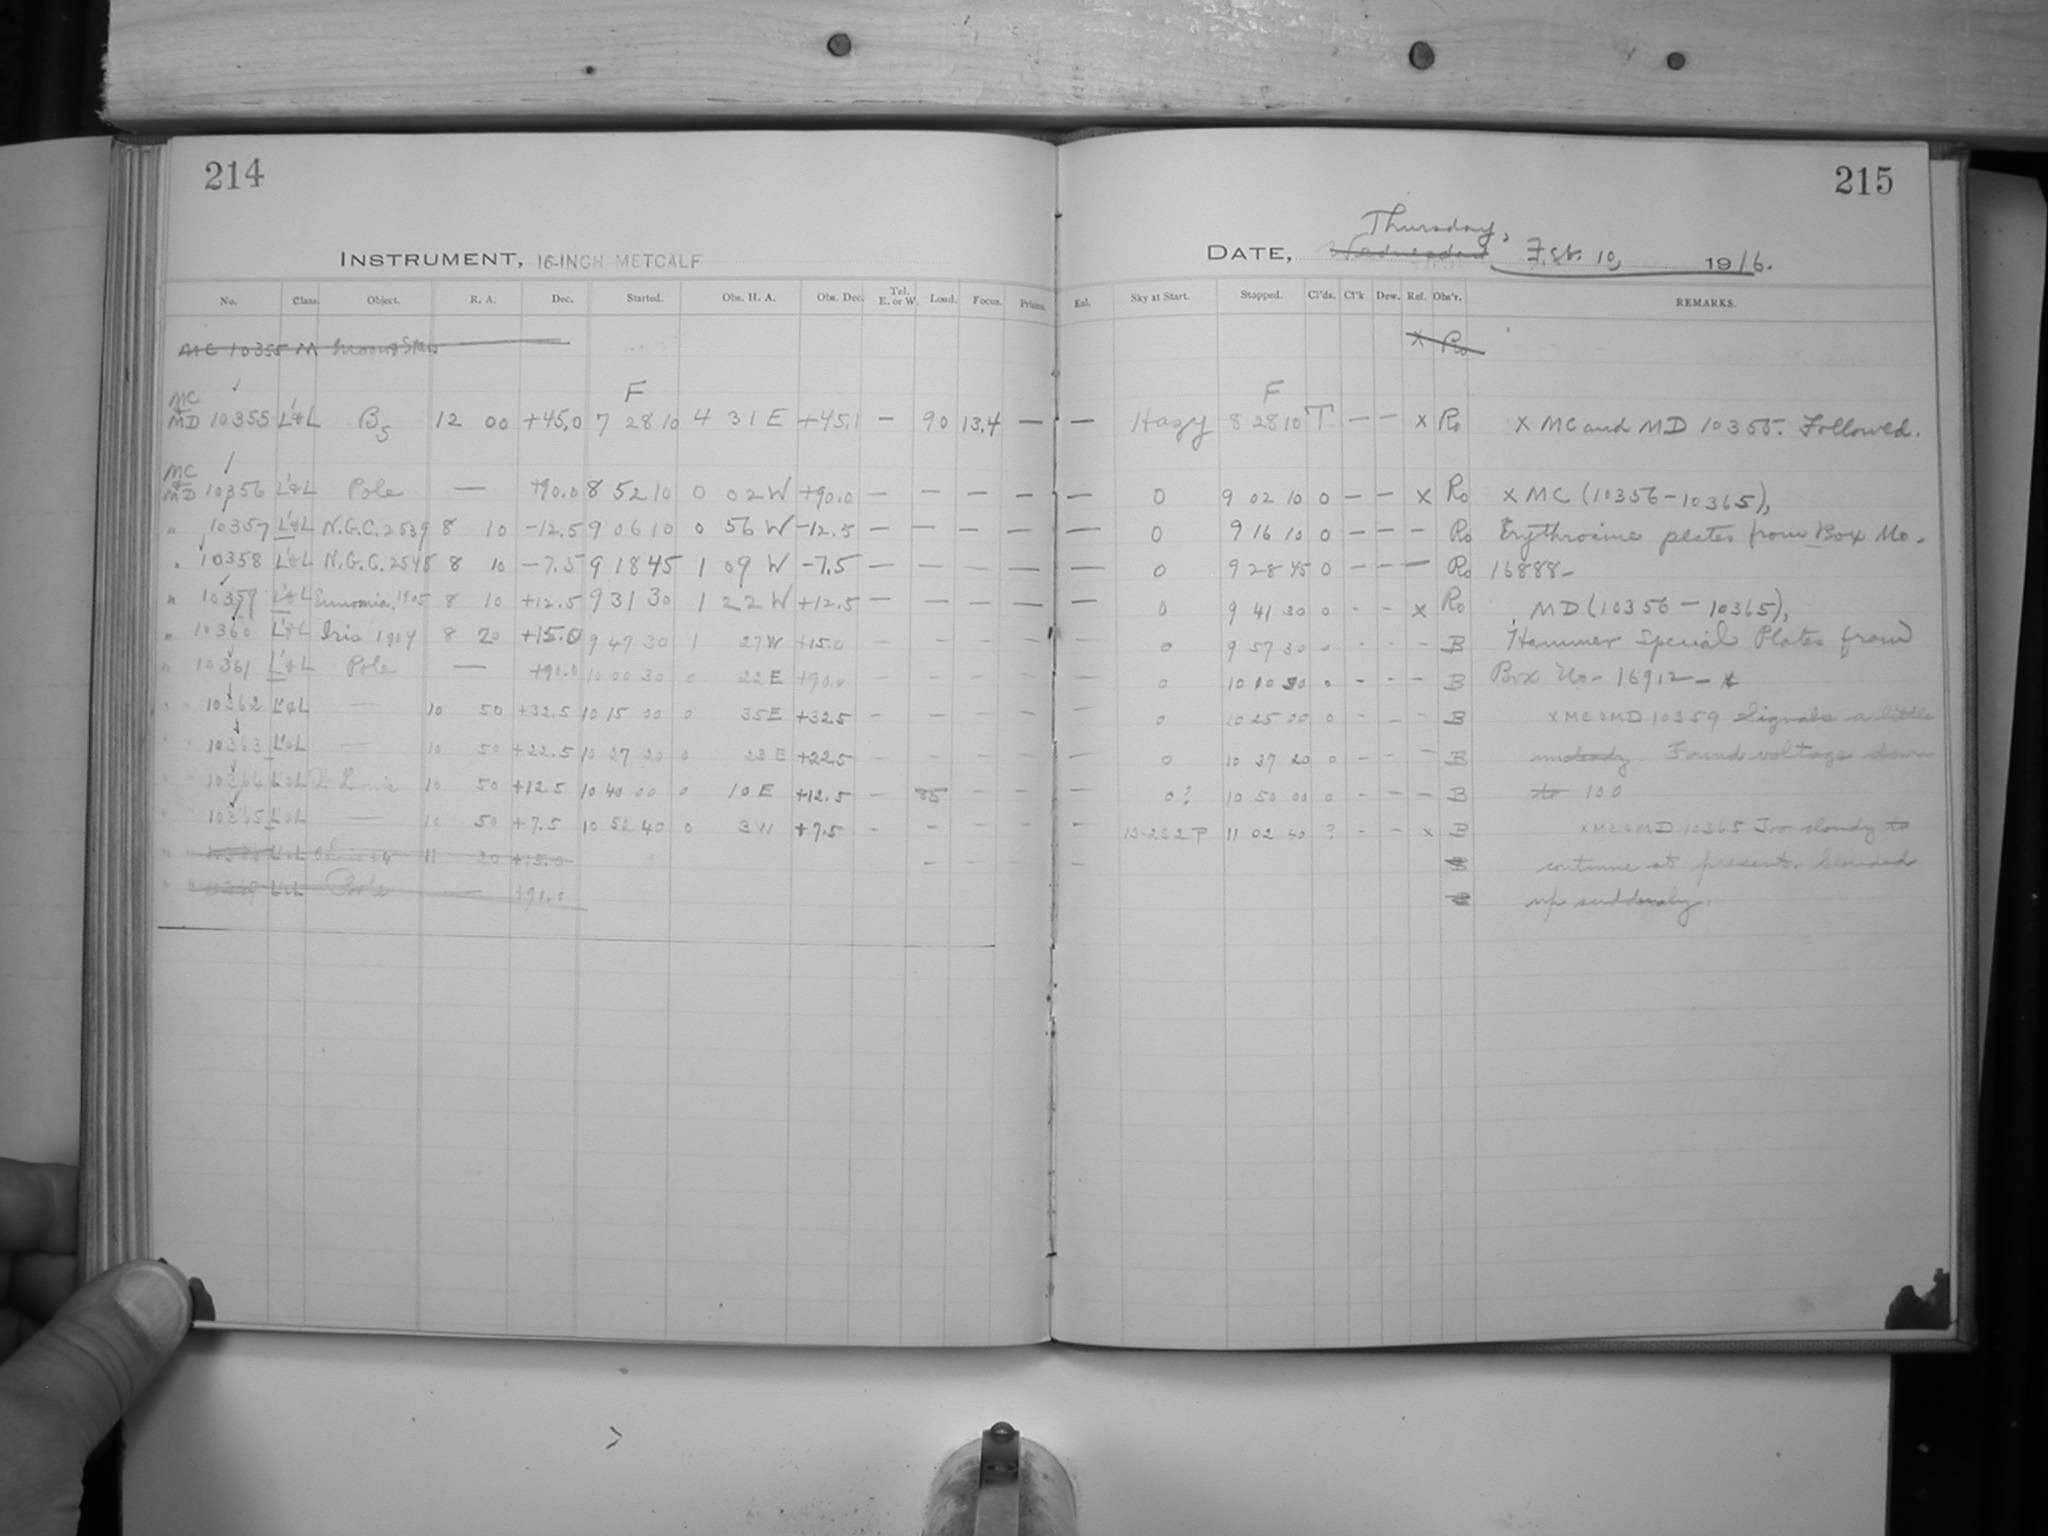 214
INSTRUMENT, 16-INCH METCALF
No. Class. Object. R. A. Dec. Started. Obs. H. A. Obs. Dec. Tel. E. or W. Load. Focus. Prisms.
MC 10355 M
MC & MD 10355 L'&L B5 12 00 +45.0 F 7 28 10 4 31 E +45.1 — 90 13.4 —
MC & MD 10356 L'&L Pole — +90.0 8 52 10 0 02 W +90.0 — — — —
" 10357 L'&L N.G.C. 2539 8 10 -12.5 9 06 10 0 56 W -12.5 — — — —
" 10358 L'&L N.G.C. 2548 8 10 -7.5 9 18 45 1 09 W -7.5 — — — —
" 10359 L'&L Eunomia, 1905 8 10 +12.5 9 31 30 1 22 W +12.5 — — — —
" 10360 L'&L Iris 1909 8 20 +15.0 9 47 30 1 27 W +15.0 — — — —
" 10361 L'&L Pole — +90.0 10 00 30 0 22 E +90.0 — — — —
" " 10362 L'&L — 10 50 +32.5 10 15 00 0 35 E +32.5 — — — —
" " 10363 L'&L — 10 50 +22.5 10 27 20 0 23 E +22.5 — — — —
" " 10364 L'&L 10 50 +12.5 10 40 00 0 10 E +12.5 — 85 — —
" " 10365 L'&L — 10 50 +7.5 10 52 40 0 3 W +7.5 — — — —
" " L'&L 11 20 +15.0 — — —
" " L'&L Pole — +90.0
215
DATE, Wednesday Thursday, Feb. 10, 1916.
Sal. Sky at Start. Stopped. Cl'ds. Cl'k Dew. Ref. Obs'r. REMARKS.
X Ro
— Hazy F 8 28 10 T — — X Ro X MC and MD 10355. Followed.
— 0 9 02 10 0 — — X Ro X MC (10356-10365),
— 0 9 16 10 0 — — — Ro Erythrosine plates from Box No.
— 0 9 28 45 0 — — — Ro 16888-
— 0 9 41 30 0 - - X Ro MD (10356-10365),
— 0 9 57 30 0 - - - B Hammer Special Plates from
— 0 10 10 30 0 - - - B Box No- 16912-
— 0 10 25 00 0 - - - B X MC & MD 10359 Signals a little
— 0 10 37 20 0 - - - B unsteady. Found voltage down
— 0? 10 50 00 0 - - - B to 100
— 13-252 P 11 02 40 ? - - X B X MC & MD 10365 Too cloudy to
— B continue at present. Clouded
up suddenly.